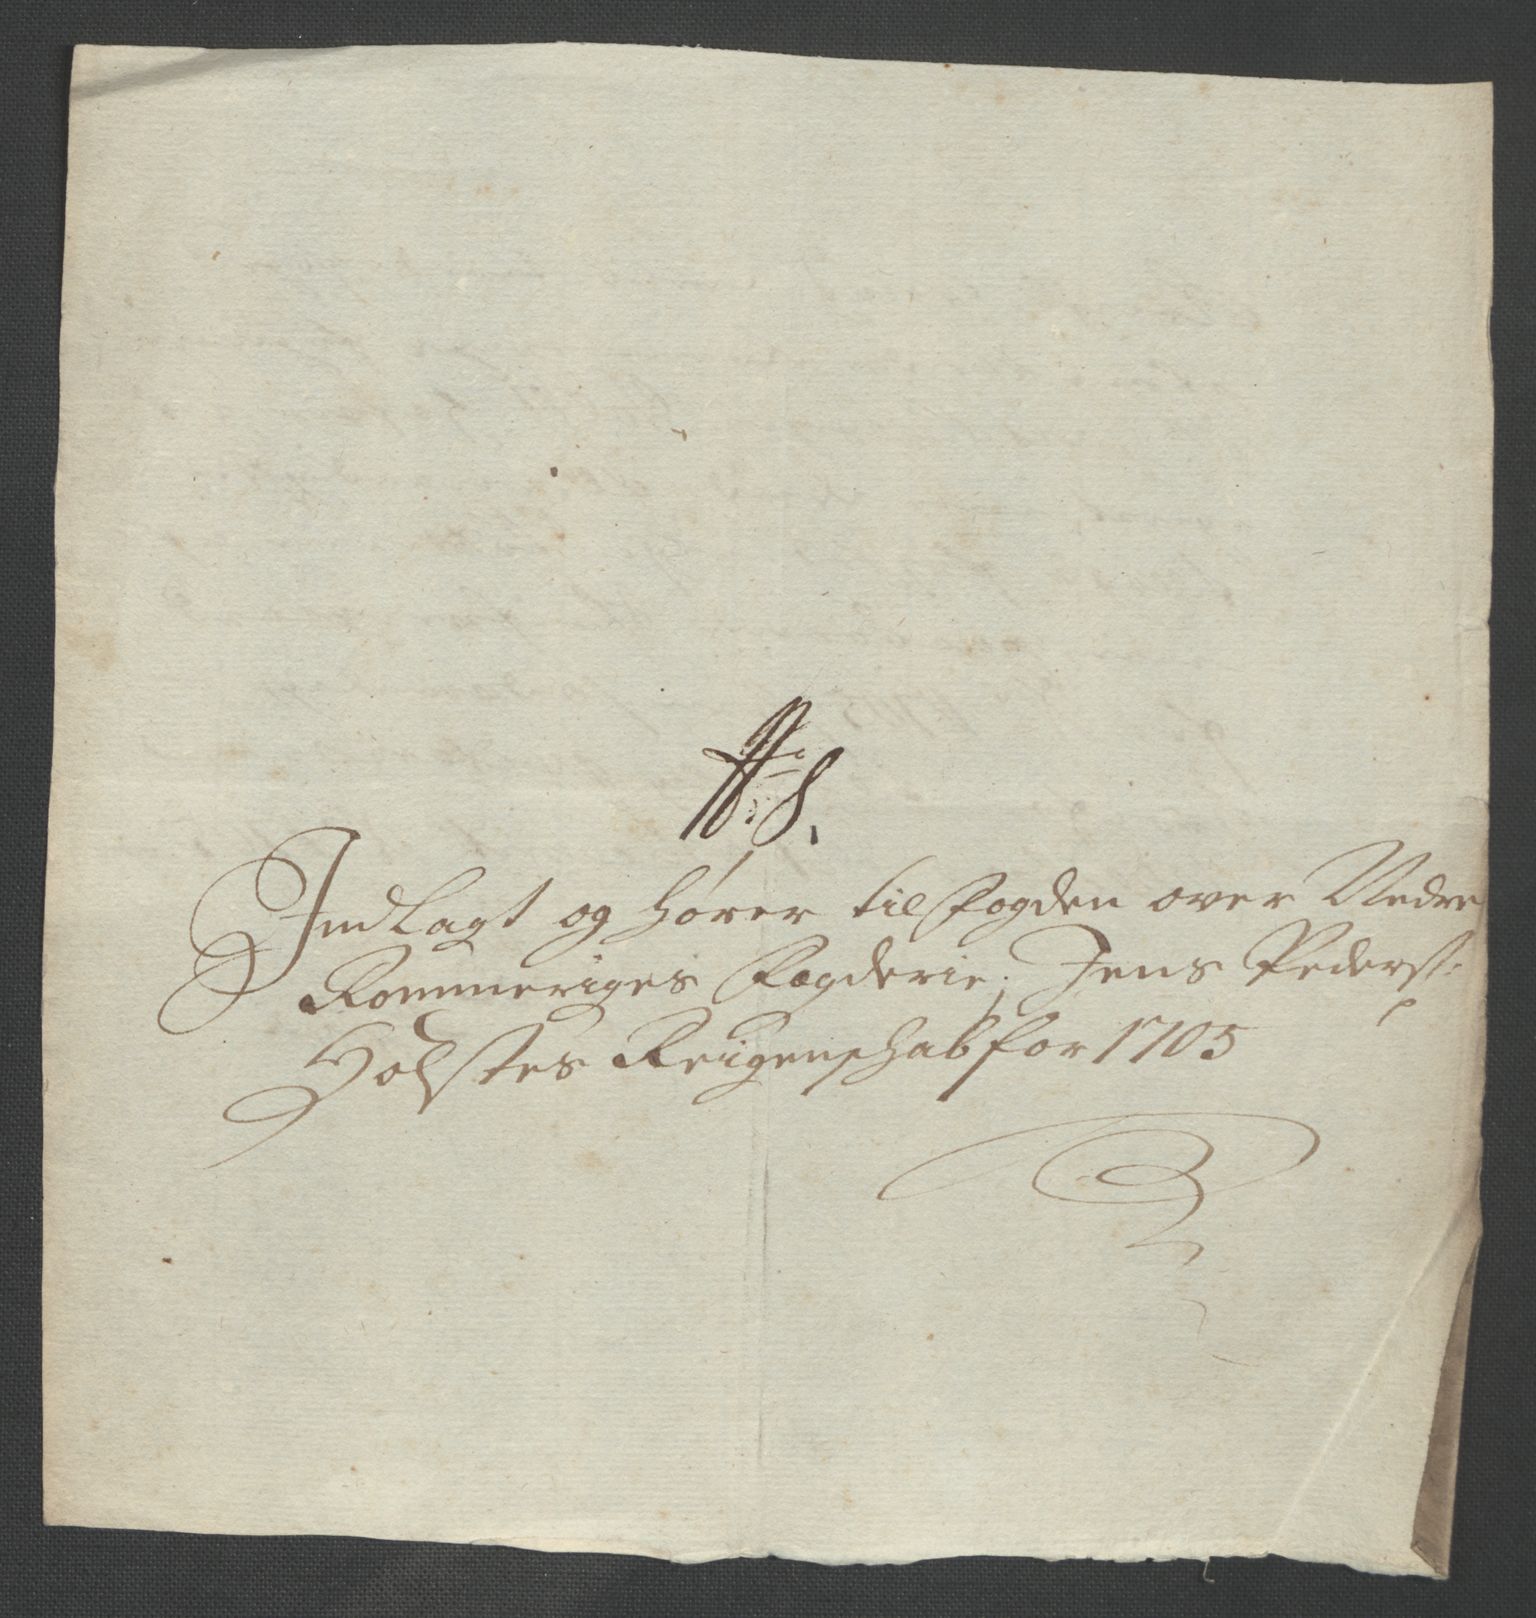 No 8.
Indlagt og hører til Fogden over Nedre
Rommeriges Fogderie, Jens Peders:
Holstes Reigenschab for 1705